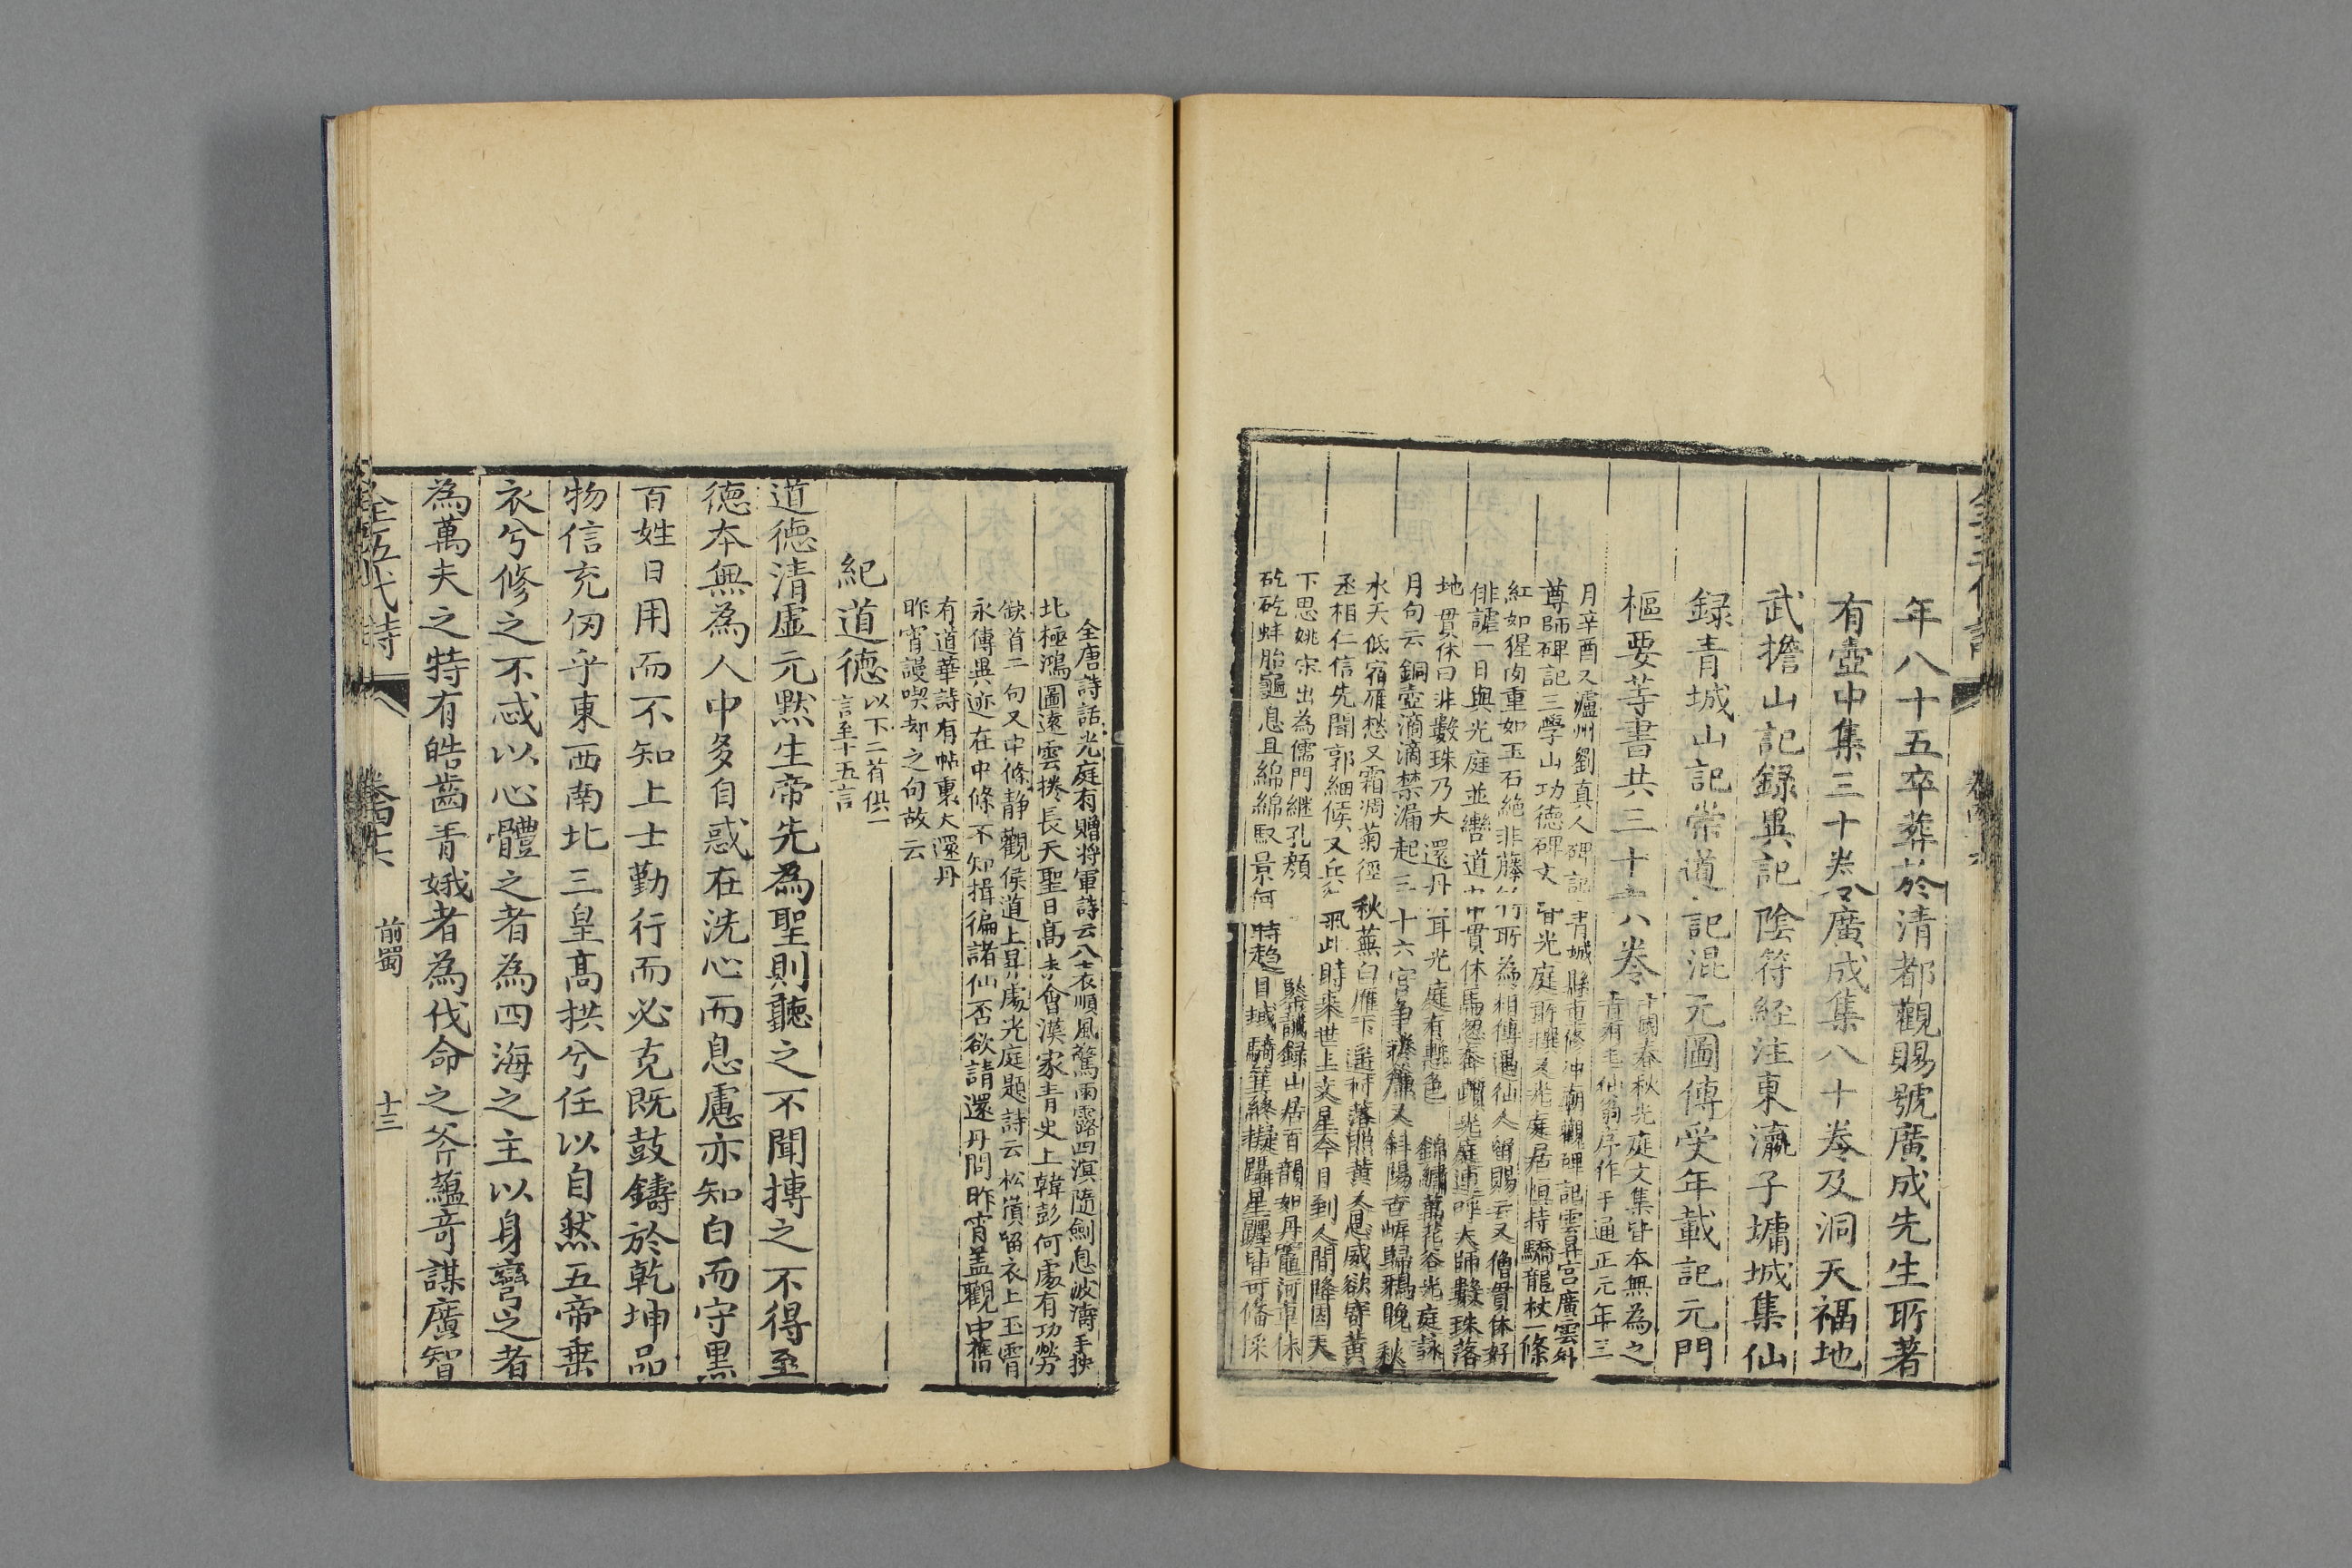 年八十五卒葬於清都觀賜號廣成先生所著
有壺中集三十卷廣成集八十卷及洞天福地
武擔山記録異記陰符経注東瀛子墉城集仙
録青城山記常道記混元圖傳受年載記元門
樞要等書共三十六卷
十國春秋光庭文集皆本無為之
青有毛仙翁序作于通正元年三
月辛酉又瀘州劉真人碑記青城縣重修冲
觀碑記雲昇宮廣雲外
尊師碑記三學山功德碑文皆光庭所撰又光庭居恒持驕龍杖一條
紅如猩肉重如玉石絶非藤竹所為相傳遇仙人留賜云又僧貫休好
俳謔一日與光庭並轡道中貫休馬忽奔躓光庭連呼大師數珠落
地貫休曰非數珠乃大還丹耳光庭有慙色 錦繡萬花谷光庭詠
月句云銅壺滴滴禁漏起三十六宮争捲簾又斜陽古岸歸鴉晚秋
水天低宿雁愁又霜凋菊徑秋蕪白雁下遥村落照黄
丞相仁信先聞郭細侯又兵氣此時来世上文星今日到人間降因天
下思姚宋出為儒門継孔顔 鑒誡録山居百韻如丹竈河車休
矻矻蚌胎龜息且綿綿馭景何時趍
全唐詩話光庭有贈将軍詩云八表順風驚雨露四溟隨劍息波濤手扶
北極鴻圖遠雲捲長天聖日髙未會漢家青史上韓彭何處有功勞
缺首二句又中條静觀侯道上昇處光庭題詩云松濱留衣上玉霄
永傳異迹在中條不知揖徧諸仙否欲請還丹問昨宵盖觀中舊
有道華詩有帖裏大還丹
昨宵謾喫却之句故云
紀道德 以下二首俱一
言至十五言
道德清虛元黙生帝先為聖則聽之不聞摶之不得至
德本無為人中多自惑在洗心而息慮亦知白而守黒
百姓日用而不知上士勤行而必克既鼓鑄於乾坤品
物信充仞乎東西南北三皇髙拱兮任以自然五帝垂
衣兮修之不忒以心體之者為四海之主以身彎之者
為萬夫之特有皓齒青娥者為伐命之斧蘊竒謀廣智
全五代詩
前蜀
十三